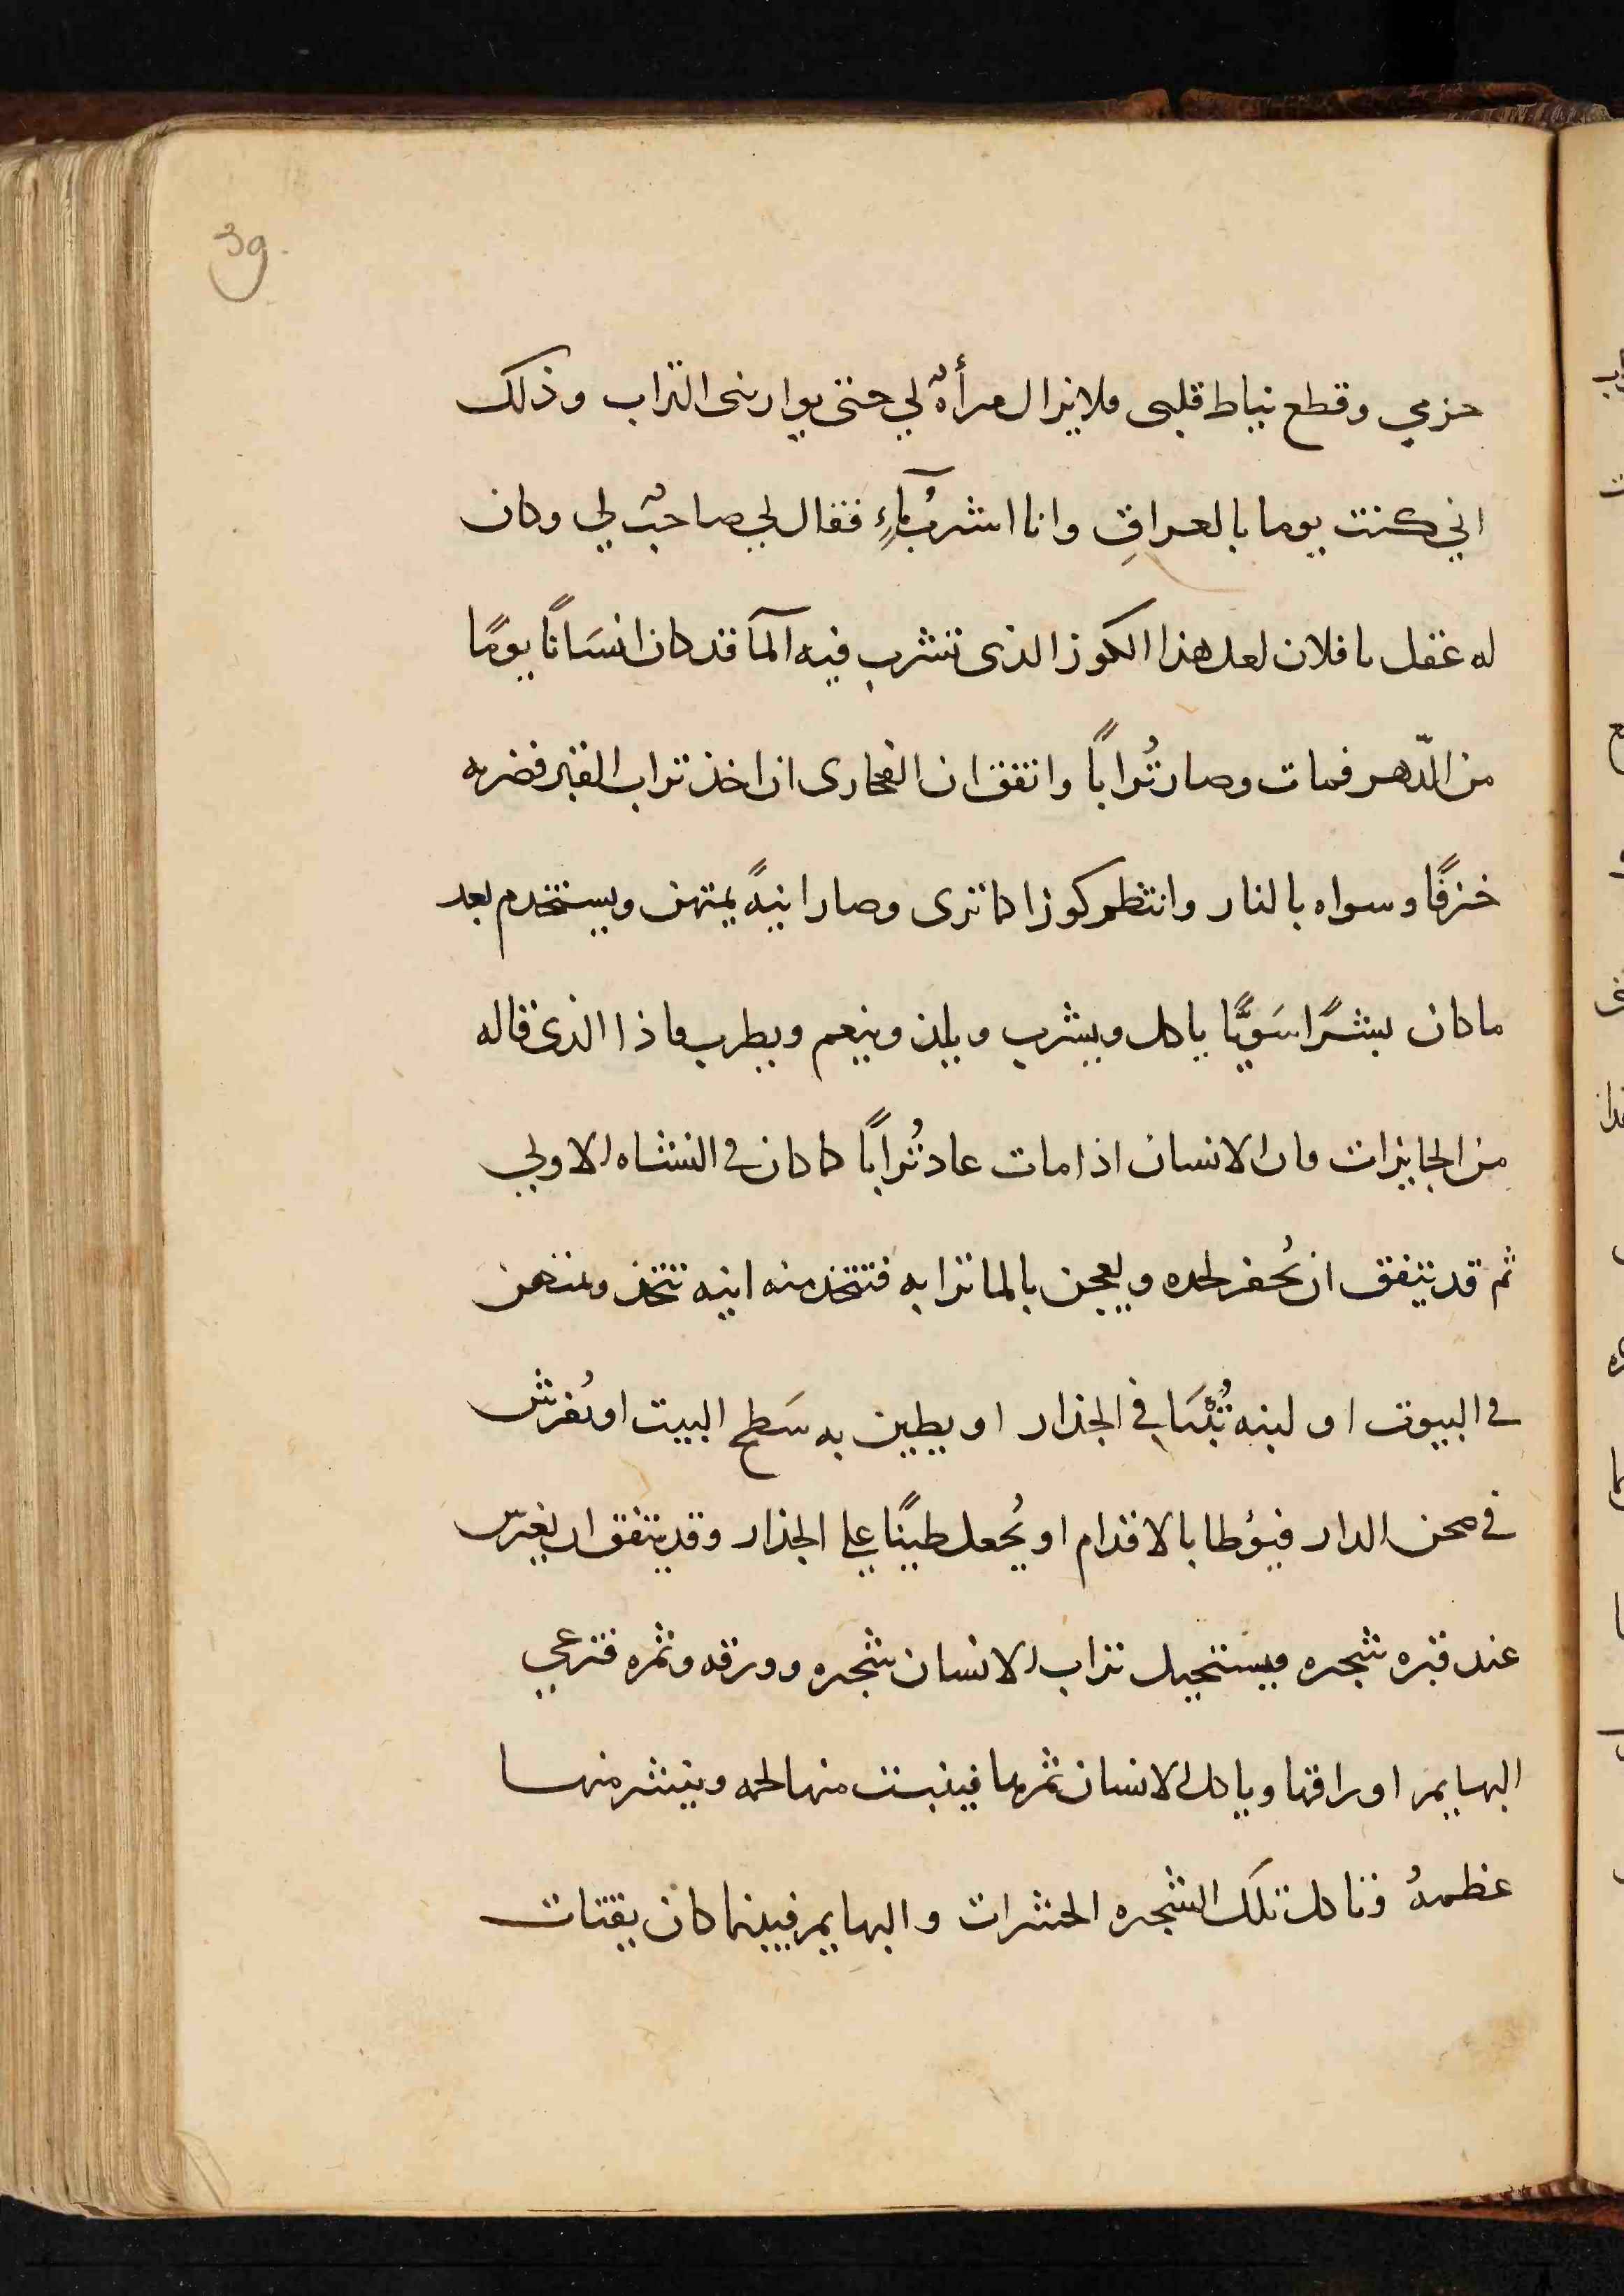 39.
حزمي وقطع نياط قلبي فلا يزال مرأةً لي حتى يواريني التراب وذلك
اني كنت يوما بالعراقِ وانا اشربُ مآءٍ فقال لي صاحبٌ لي وكان
له عقل يا فلان لعل هذا الكوز الذي تشرب فيه المآ قد كان انسَانًا يومًا
من الدّهر فمات وصار تُرابًا واتفق ان الفخارى ان اخذ تراب القبر فضربه
خزفًا وسواه بالنار وانتظم كوزا كما ترى وصار انيةً يمتهن ويستخدم بعد
ما كان بشرًا سَويًّا ياكل ويشرب ويلذ وينعم ويطرب فاذا الذى قاله
من الجايزات فان الانسان اذا مات عاد تُرابًا كما كان في النشاه الاولي
ثم قد يتفق ان يُحفر لحده ويعجن بالما ترابه فتتخذ منه انيه تتخذ وتمتهن
في البيوت او لبنه تُبْنَا في الجدار او يطين به سَطح البيت او يُفرش
في صحن الدار فيؤطا بالاقدام او يُجعل طينًا علي الجدار وقد يتفق ان يغرس
عند قبره شجره فيستحيل تراب الانسان شجره وورقه وثمره فترعي
البهايم اوراقها وياكل الانسان ثمرها فينبت منها لحمه وينشر منها
عظمهُ وتاكل تلك الشجره الحشرات والبهايم فبينما كان يقتات